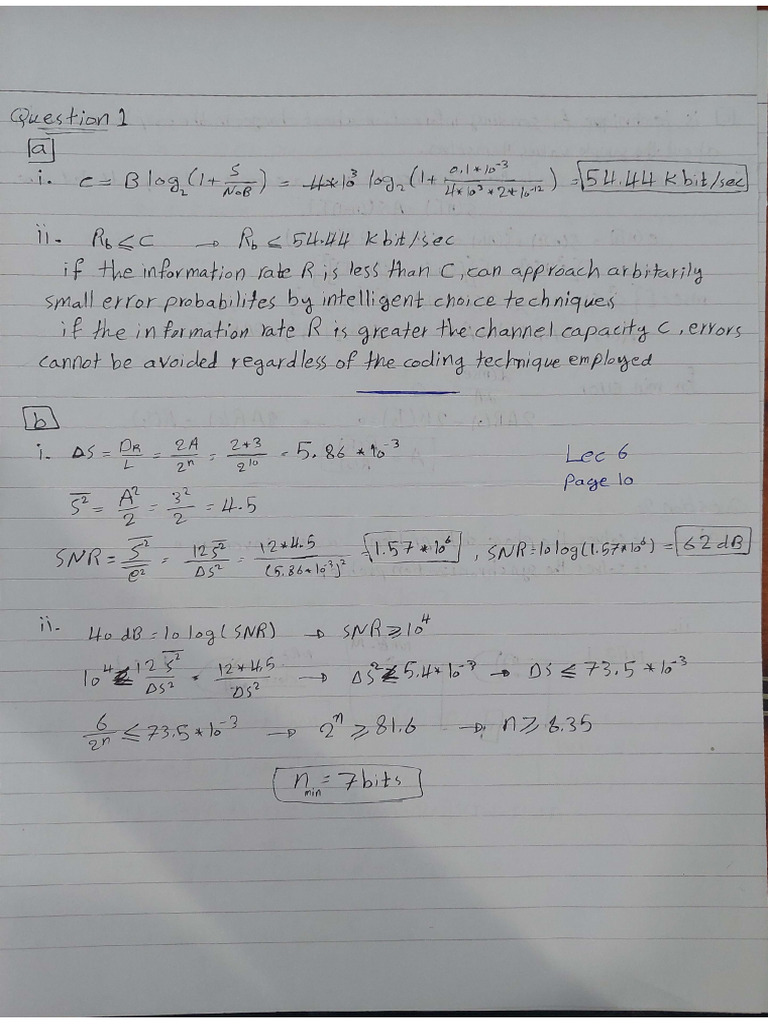 Question 1
a
i. C = B log₂(1+ S/N₀B) = 4*10³ log₂(1+ 0.1*10⁻³/4*10³*2*10⁻¹²) = 54.44 K bit/sec
ii- R_b ≤ C → R_b ≤ 54.44 K bit/sec
if the information rate R is less than C, can approach arbitarily
small error probabilites by intelligent choice techniques
if the information rate R is greater the channel capacity C, errors
cannot be avoided regardless of the coding technique employed
b
i. ΔS = D_R/L = 2A/2ⁿ = 2*3/2¹⁰ = 5.86 *10⁻³
Lec 6
Page 10
S̅²̅ = A²/2 = 3²/2 = 4.5
SNR = S̅²̅/e̅²̅ = 12S̅²̅/ΔS² = 12*4.5/(5.86*10⁻³)² = 1.57*10⁶, SNR=10log(1.57*10⁶) = 62 dB
ii. 40 dB = 10 log(SNR) → SNR ≥ 10⁴
10⁴ ≤ 12 S̅²̅/ΔS² = 12*4.5/ΔS² → ΔS² ≤ 5.4*10⁻³ → ΔS ≤ 73.5 *10⁻³
6/2ⁿ ≤ 73.5*10⁻³ → 2ⁿ ≥ 81.6 → n ≥ 6.35
n_min = 7 bits